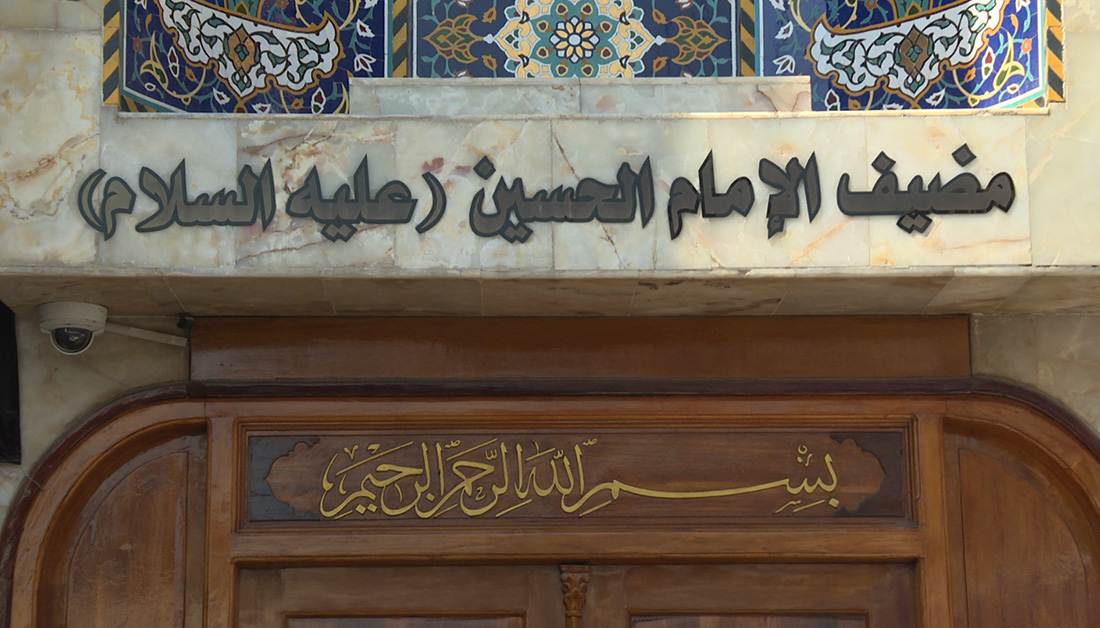 مضيف الإمام الحسين (عليه السلام)
بسم الله الرحمن الرحيم